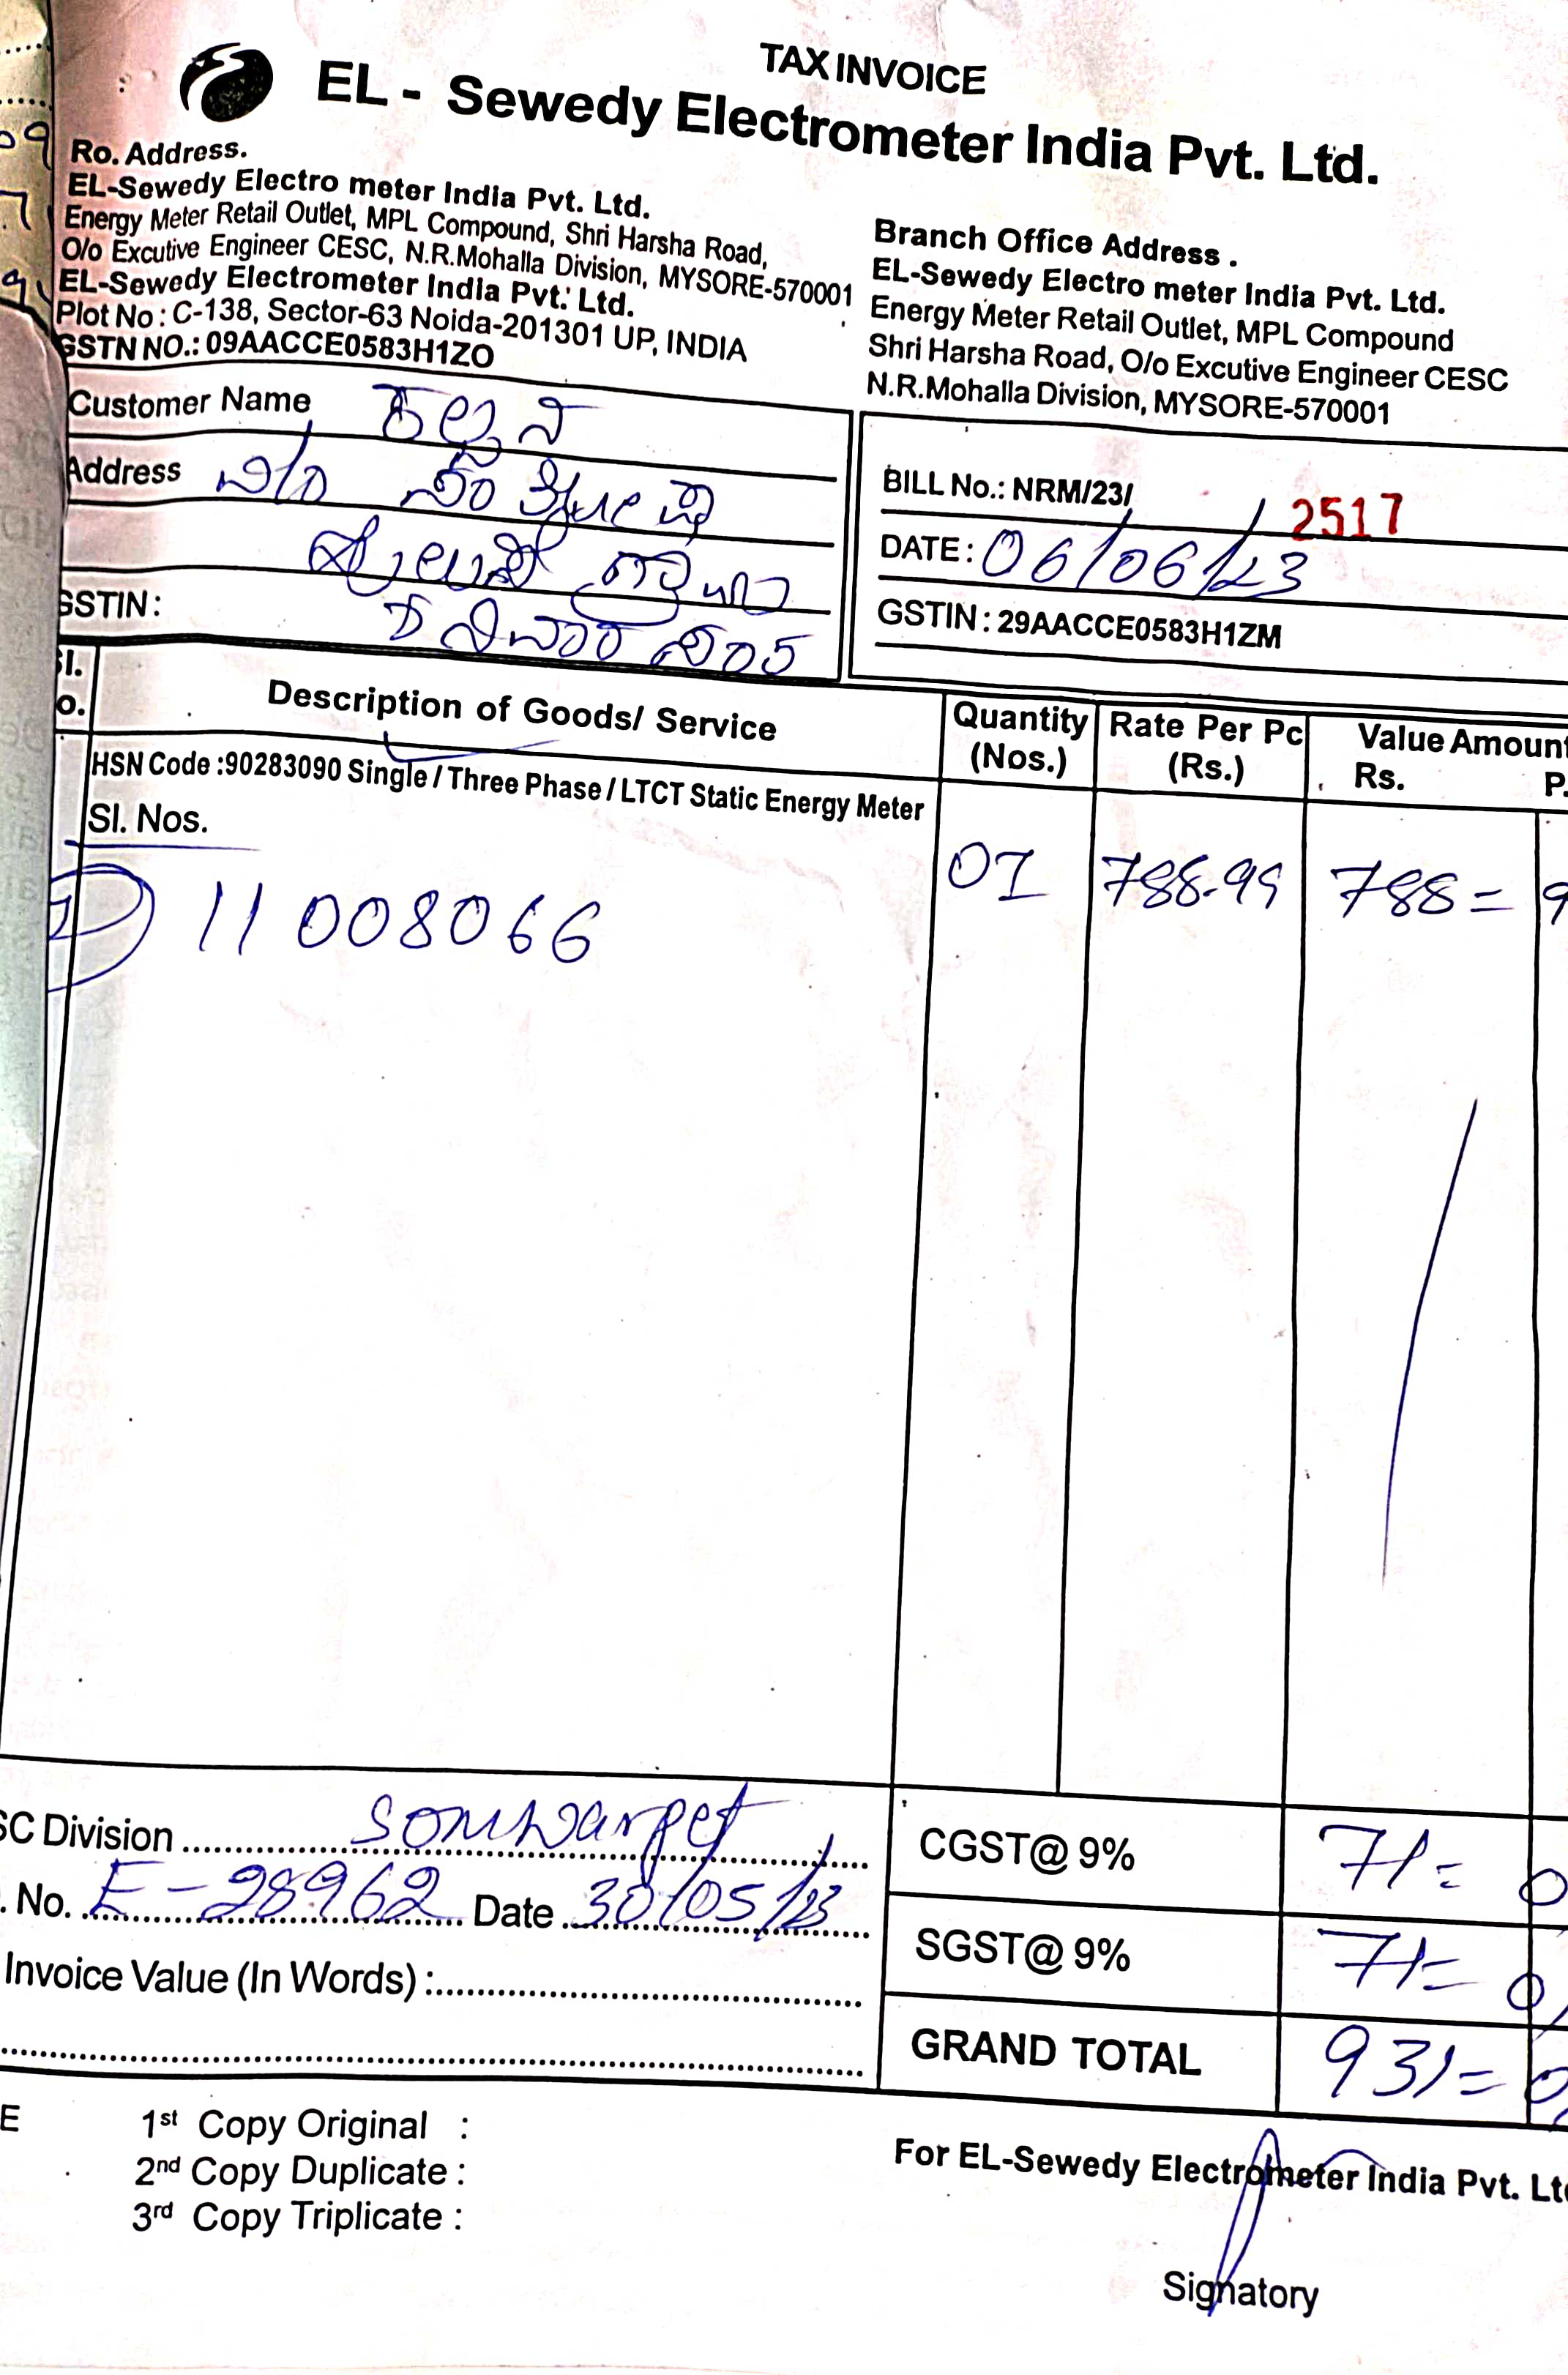 TAX INVOICE
EL - Sewedy Electrometer India Pvt. Ltd.
Ro. Address.
EL-Sewedy Electro meter India Pvt. Ltd.
Energy Meter Retail Outlet, MPL Compound, Shri Harsha Road,
O/o Excutive Engineer CESC, N.R.Mohalla Division, MYSORE-570001
EL-Sewedy Electrometer India Pvt. Ltd.
Plot No : C-138, Sector-63 Noida-201301 UP, INDIA
GSTN NO.: 09AACCE0583H1ZO
Branch Office Address .
EL-Sewedy Electro meter India Pvt. Ltd.
Energy Meter Retail Outlet, MPL Compound
Shri Harsha Road, O/o Excutive Engineer CESC
N.R.Mohalla Division, MYSORE-570001
Customer Name
Address
GSTIN :
BILL No.: NRM/23/ 2517
DATE : 06/06/23
GSTIN : 29AACCE0583H1ZM
Sl. Description of Goods/ Service Quantity Rate Per Pc Value Amount
o. (Nos.) (Rs.) Rs. P.
HSN Code :90283090 Single / Three Phase / LTCT Static Energy Meter
Sl. Nos.
1) 11008066 01 788.99 788= 9
SC Division Somwarpet
. No. E-28962 Date 30/05/23
Invoice Value (In Words) :
CGST@ 9% 71= 0
SGST@ 9% 71= 0
GRAND TOTAL 931= 0
E 1st Copy Original :
2nd Copy Duplicate :
3rd Copy Triplicate :
For EL-Sewedy Electrometer India Pvt. Lt
Signatory